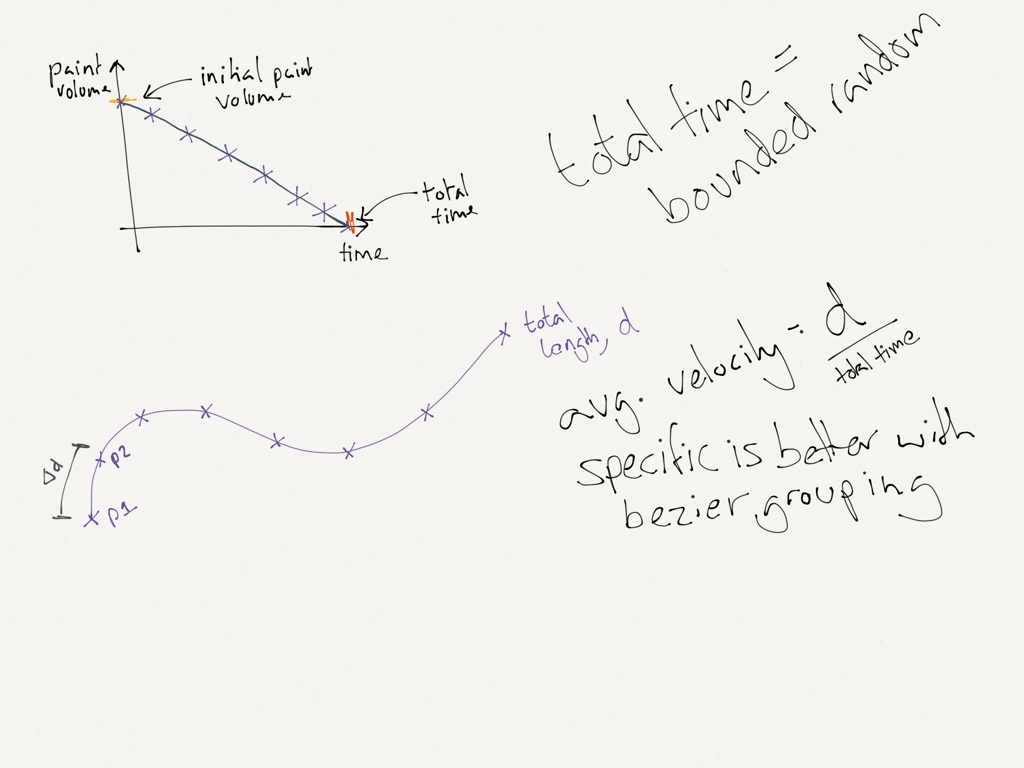 paint
volume
initial paint
volume
total
time
time
total time =
bounded random
total
length, d
Δd
p2
p1
avg. velocity = d
total time
specific is better with
bezier grouping